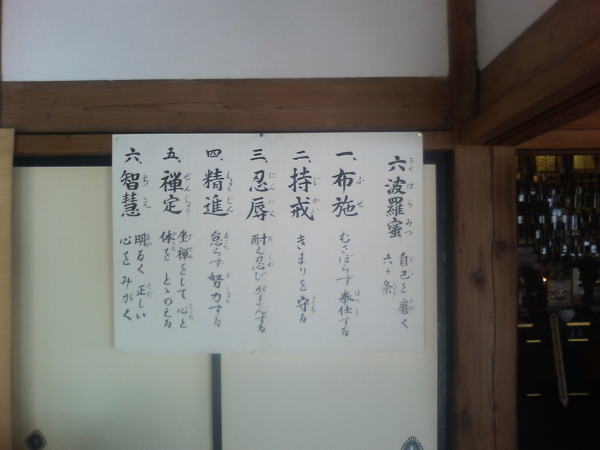 六波羅蜜 自己を磨く
六ヶ条
一、布施 むさぼらず奉仕する
二、持戒 きまりを守る
三、忍辱 耐え忍びがまんする
四、精進 怠らず努力する
五、禅定 坐禅をして心と
体をととのえる
六、智慧 明るく正しい
心をみがく